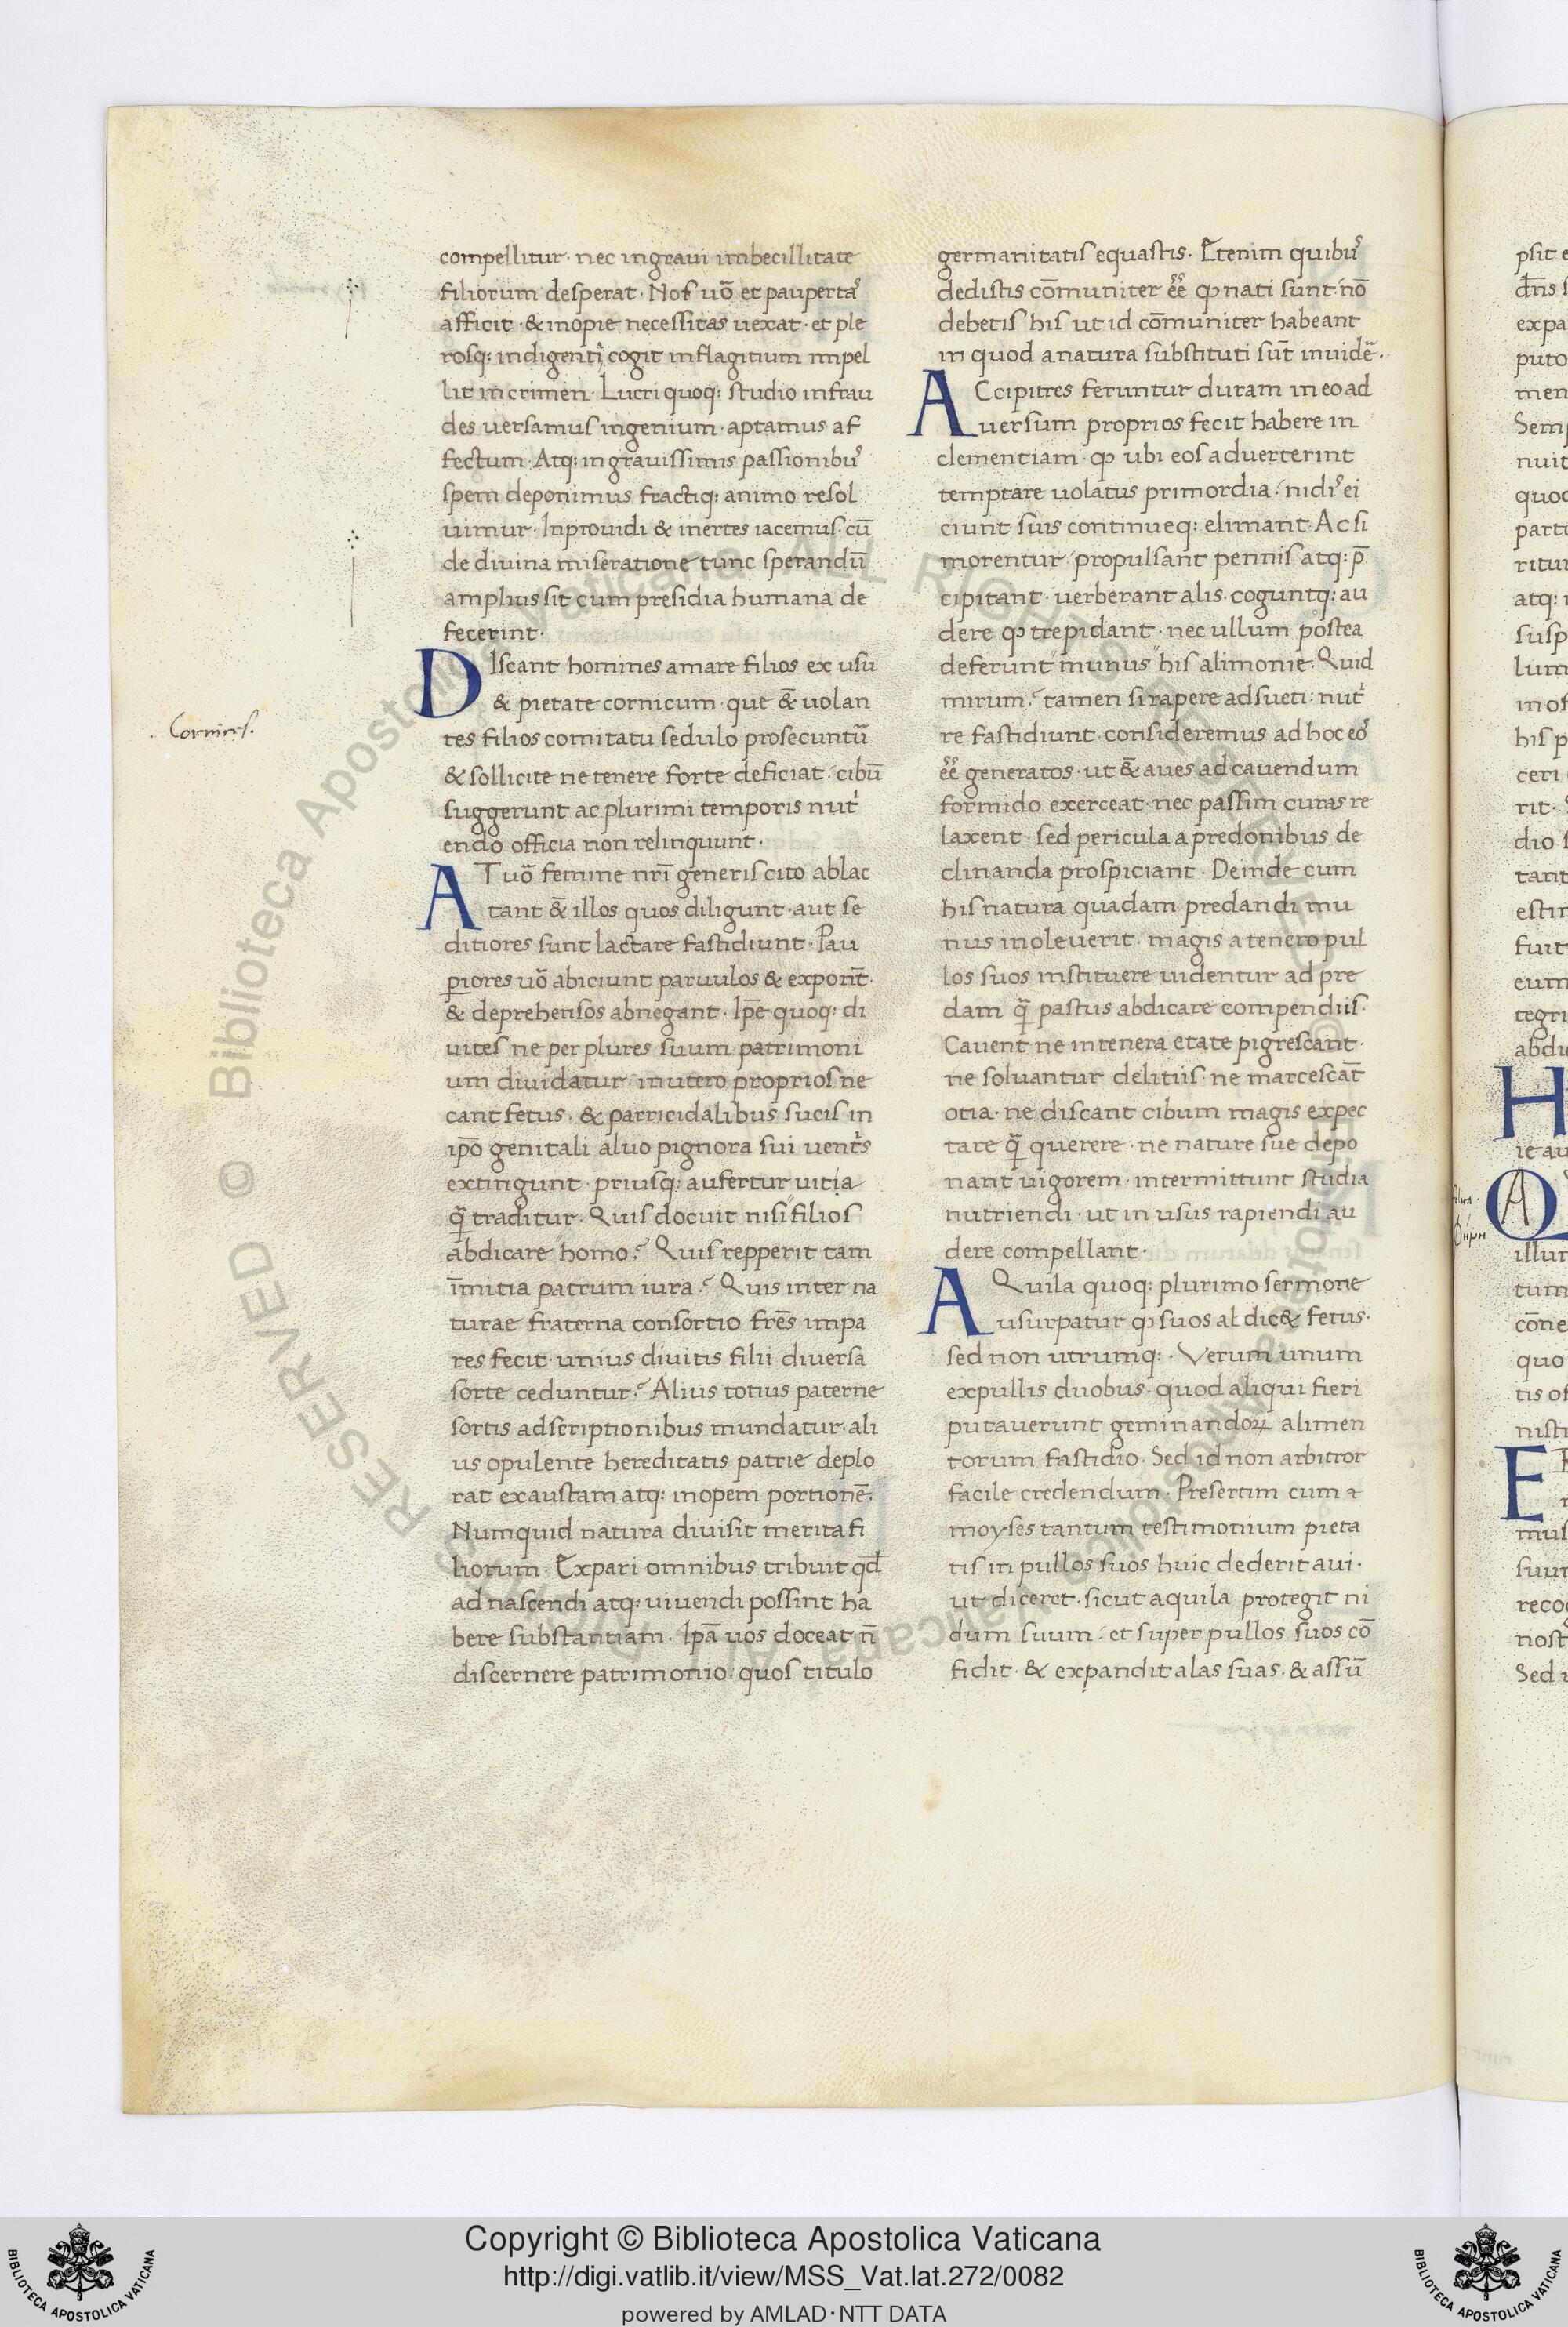 compellitur· nec ingraui imbecillitate
filiorum desperat· Nos uõ et paupertaꝰ
afficit ·& inopie necessitas uexat· et ple
rosq; indigentị cogit inflagitium impel
lit in crimen· Lucri quoq; studio infrau
des uersamus ingenium· aptamus af
fectum· Atq; ingrauissimis passionibuꝰ
spem deponimus fractiq; animo resol
uimur· Inprouidi & inertes iacemus· cũ
de diuina miseratione tunc sperandũ
amplius sit cum presidia humana de
fecerint·
DIscant homines amare filios ex usu
& pietate cornicum· que &̃ uolan
tes filios comitatu sedulo prosecuntũ
& sollicite ne tenere forte deficiat· cibũ
suggerunt ac plurimi temporis nut̉
endo officia non relinquunt·
Cornices.
AT uõ femine nr̃i generis cito ablac
tant &̃ illos quos diligunt· aut se
ditiores sunt lactare fastidiunt· Pau
ꝑiores uõ abiciunt paruulos & expont̃·
& deprehensos abnegant· Ip̃e quoq; di
uites ne per plures suum patrimoni
um diuidatur· inutero proprios ne
cant fetus· & parricidalibus sucis in
ip̃o genitali aluo pignora sui uent̉s
extingunt· priusq; aufertur uitia
q̃ traditur· Quis docuit nisi filios
abdicare homo? Quis repperit tam
ĩmitia patrum iura? Quis inter na
turae fraterna consortio fr̃es impa
res fecit· unius diuitis filii diuersa
sorte ceduntur? Alius totius paterne
sortis adscriptionibus mundatur· ali
us opulente hereditatis patrie deplo
rat exaustam atq; inopem portionẽ·
Numquid natura diuisit merita fi
liorum· Ex pari omnibus tribuit qd̃
ad nascendi atq; uiuendi possint ha
bere substantiam· Ip̃a uos doceat ñ
discernere patrimonio· quos titulo
germanitatis equastis· Etenim quibuꝰ
dedistis cõmuniter ẽẽ ꝙ nati sunt· nõ
debetis his ut id cõmuniter habeant
in quod a natura substituti sũt inuidẽ·
ACcipitres feruntur duram in eo ad
uersum proprios fecit habere in
clementiam· ꝙ ubi eos aduerterint
temptare uolatus primordia· nidiꝰ ei
ciunt suis continueq; elimant· Ac si
morentur· propulsant pennis atq; p̃
cipitant· uerberant alis· coguntq; au
dere ꝙ trepidant· nec ullum postea
deferunt munus his alimonie· Quid
mirum? tamen si rapere adsueti· nut̉
re fastidiunt· consideremus ad hoc eoꝰ
ẽẽ generatos· ut &̃ aues ad cauendum
formido exerceat· nec passim curas re
laxent· sed pericula a predonibus de
clinanda prospiciant· Deinde cum
his natura quadam predandi mu
nus inoleuerit· magis a tenero pul
los suos instituere uidentur ad pre
dam q̃ pastus abdicare compendiis·
Cauent ne in tenera etate pigrescant·
ne soluantur delitiis· ne marcescãt
otia· ne discant cibum magis expec
tare q̃ querere· ne nature sue depo
nant uigorem· intermittunt studia
nutriendi· ut in usus rapiendi au
dere compellant·
AQuila quoq; plurimo sermone
usurpatur ꝙ suos abdic& fetus·
sed non utrumq;· Verum unum
expullis duobus· quod aliqui fieri
putauerunt geminandoꝝ alimen
torum fastidio· Sed id non arbitror
facile credendum· Presertim cum
moyses tantum testimonium pieta
tis in pullos suos huic dederit aui·
ut diceret· sicut aquila protegit ni
dum suum· et super pullos suos cõ
fidit· & expandit alas suas· & assũ
Copyright © Biblioteca Apostolica Vaticana
http://digi.vatlib.it/view/MSS_Vat.lat.272/0082
powered by AMLAD·NTT DATA
BIBLIOTECA APOSTOLICA VATICANA
BIBLIOTECA APOSTOLICA VATICANA